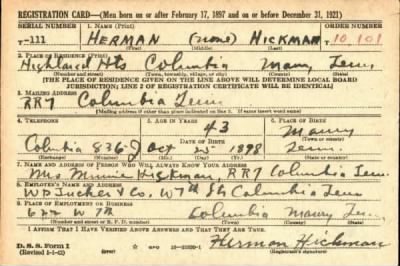 REGISTRATION CARD—(Men born on or after February 17, 1897 and on or before December 31, 1921)
SERIAL NUMBER 1. NAME (Print) ORDER NUMBER
T-111 HERMAN (none) HICKMAN T 10 101
(First) (Middle) (Last)
2. PLACE OF RESIDENCE (Print)
Highland Hts Columbia Maury Tenn.
(Number and street) (Town, township, village, or city) (County) (State)
[THE PLACE OF RESIDENCE GIVEN ON THE LINE ABOVE WILL DETERMINE LOCAL BOARD
JURISDICTION; LINE 2 OF REGISTRATION CERTIFICATE WILL BE IDENTICAL]
3. MAILING ADDRESS
RR7 Columbia Tenn
[Mailing address if other than place indicated on line 2. If same insert word same]
4. TELEPHONE 5. AGE IN YEARS 6. PLACE OF BIRTH
43 Maury
DATE OF BIRTH
Columbia 836-J Oct 25 1898 Tenn.
(Exchange) (Number) (Mo.) (Day) (Yr.) (State or country)
7. NAME AND ADDRESS OF PERSON WHO WILL ALWAYS KNOW YOUR ADDRESS
Mrs Minnie Hickman, RR7 Columbia Tenn
8. EMPLOYER'S NAME AND ADDRESS
W P Tucker & Co, W 7th St Columbia Tenn
9. PLACE OF EMPLOYMENT OR BUSINESS
W 7th Columbia Maury Tenn
(Number and street or R. F. D. number) (Town) (County) (State)
I AFFIRM THAT I HAVE VERIFIED ABOVE ANSWERS AND THAT THEY ARE TRUE.
D. S. S. Form 1
(Revised 1-1-42) (over)
Herman Hickman
(Registrant's signature)